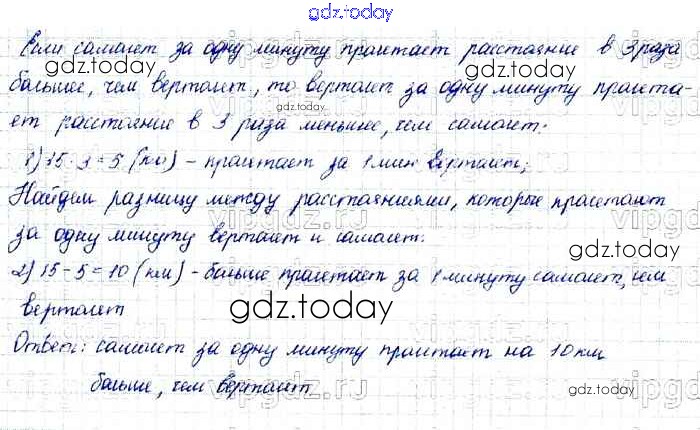 gdz.today
Если самолет за одну минуту пролетает расстояние в 3 раза
gdz.today
больше, чем вертолет, то вертолет за одну минуту пролета-
gdz.today
ет расстояние в 3 раза меньшее, чем самолет:
1) 15 : 3 = 5 (км) - пролетает за 1 мин вертолет;
Найдем разницу между расстояниями, которые пролетают
vipgdz.ru
за одну минуту вертолет и самолет:
gdz.today
2) 15 - 5 = 10 (км) - больше пролетает за 1 минуту самолет, чем
вертолет
gdz.today
Ответ: самолет за одну минуту пролетает на 10 км
больше, чем вертолет
gdz.today
vipgdz.ru